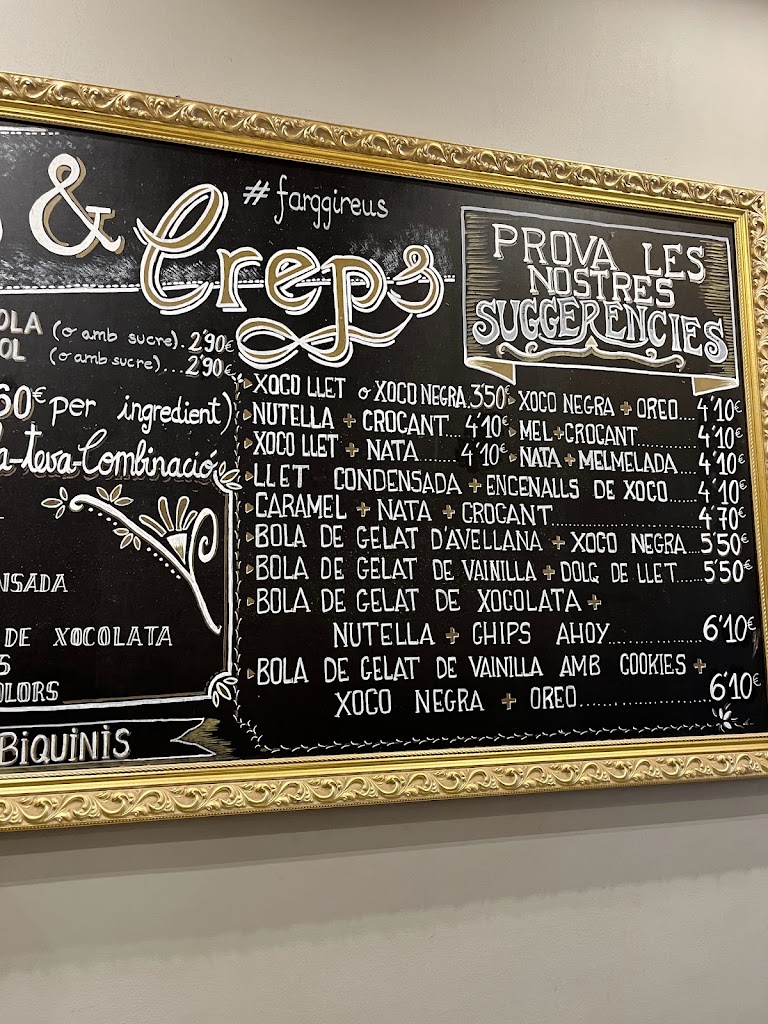 &
Creps
#farggireus
PROVA LES
NOSTRES
SUGGERÈNCIES
(o amb sucre). 2'90€
(o amb sucre)... 2'90€
60€ per ingredient)
la-teva-Combinació
DE XOCOLATA
BIQUINIS
XOCO LLET o XOCO NEGRA. 3'50€
NUTELLA + CROCANT... 4'10€
XOCO LLET + NATA..... 4'10€
XOCO NEGRA + OREO.... 4'10€
MEL+CROCANT............ 4'10€
NATA + MELMELADA.... 4'10€
LLET CONDENSADA + ENCENALLS DE XOCO...... 4'10€
CARAMEL + NATA + CROCANT........................ 4'70€
BOLA DE GELAT D'AVELLANA + XOCO NEGRA... 5'50€
BOLA DE GELAT DE VAINILLA + DOLÇ DE LLET...... 5'50€
BOLA DE GELAT DE XOCOLATA +
NUTELLA + CHIPS AHOY.................. 6'10€
BOLA DE GELAT DE VAINILLA AMB COOKIES +
XOCO NEGRA + OREO....................... 6'10€